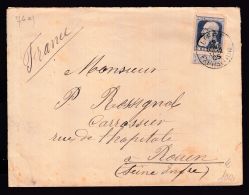 France
Monsieur
P Rossignol
Carrossier
rue de l'hopital
à Rouen
(Seine Infre)